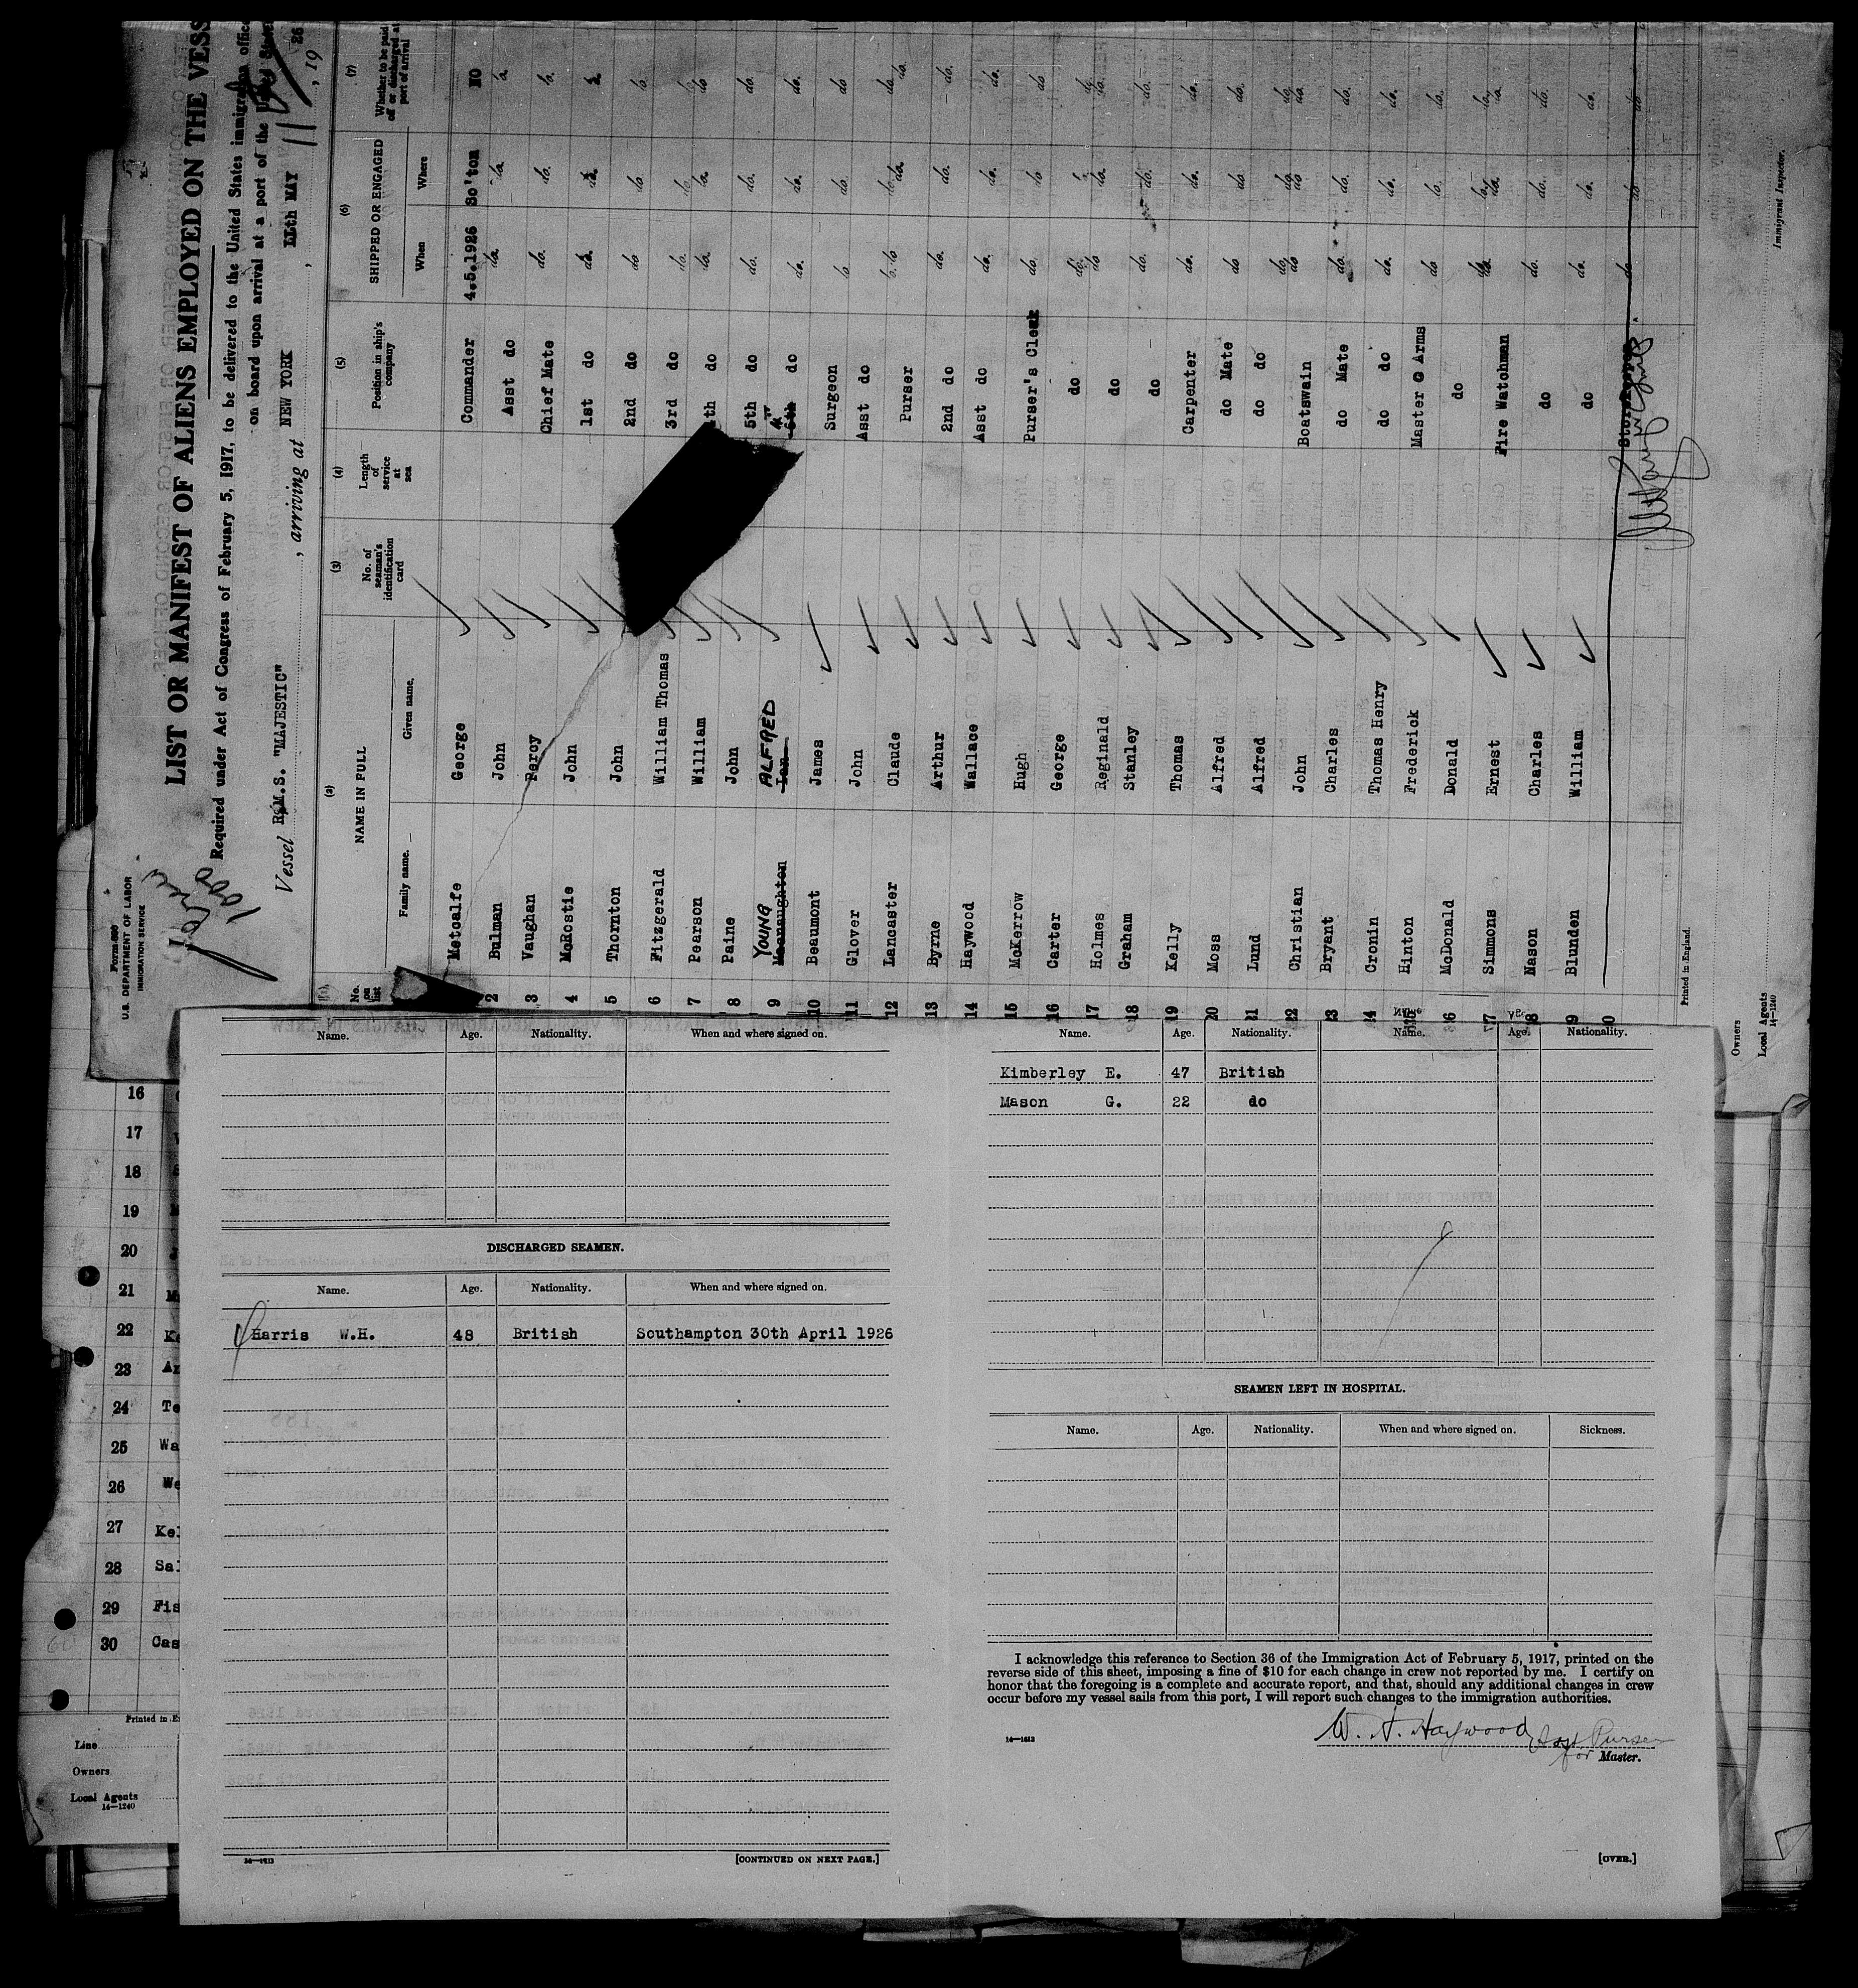 Form 680
U.S. DEPARTMENT OF LABOR
IMMIGRATION SERVICE
LIST OR MANIFEST OF ALIENS EMPLOYED ON THE VESS
Required under Act of Congress of February 5, 1917, to be delivered to the United States immigration offic
on board upon arrival at a port of the
Vessel R.M.S. "MAJESTIC", arriving at NEW YORK, 11th MAY, 19 26
(1) (2) (3) (4) (5) (6) (7)
No. on list NAME IN FULL No. of seaman's identification card Length of service at sea Position in ship's company SHIPPED OR ENGAGED Whether to be paid off or discharged at port of arrival
Family name. Given name. When Where
Metcalfe George Commander 4.5.1926 So'ton NO
2 Bulman John Asst do do. do. do.
3 Vaughan Percy Chief Mate do. do. do.
4 McRostie John 1st do do. do. do.
5 Thornton John 2nd do do do do
6 Fitzgerald William Thomas 3rd do do. do. do.
7 Pearson William 4th do do. do. do
8 Paine John 5th do do. do. do.
9 YOUNG Macnaughton ALFRED Ian 6th do do. do. do.
10 Beaumont James Surgeon do do. do
11 Glover John Asst do do. do. do.
12 Lancaster Claude Purser do do. do.
13 Byrne Arthur 2nd do do. do. do.
14 Haywood Wallace Asst do do. do. do.
15 McKerow Hugh Purser's Clerk do. do do
16 Carter George do do. do. do.
17 Holmes Reginald do do do. do.
18 Graham Stanley do do. do. do.
19 Kelly Thomas Carpenter do. do. do.
20 Moss Alfred do Mate do do. do.
21 Lund Alfred do do do. do. do.
22 Christian John Boatswain do do do
23 Bryant Charles do Mate do. do. do.
24 Cronin Thomas Henry do do do. do. do.
25 Hinton Frederick Master @ Arms do do. do.
26 McDonald Donald do do. do. do.
27 Simmons Ernest Fire Watchman do. do. do.
28 Nason Charles do do. do. do.
29 Blunden William do do. do. do.
30 Storekeeper do do do
Printed in England.
Immigrant Inspector.
Owners
Local Agents
14—1240
16
17
18
19
20
21
22 Ke
23 An
24 Te
25 Wa
26 We
27 Kel
28 Sal
29 Fis
30 Cas
Printed in E
Line
Owners
Local Agents
14—1240
Name. Age. Nationality. When and where signed on.
DISCHARGED SEAMEN.
Name. Age. Nationality. When and where signed on.
Harris W.H. 48 British Southampton 30th April 1926
14—1613
[CONTINUED ON NEXT PAGE.]
Name. Age. Nationality. Name. Age. Nationality.
Kimberley E. 47 British
Mason G. 22 do
SEAMEN LEFT IN HOSPITAL.
Name. Age. Nationality. When and where signed on. Sickness.
I acknowledge this reference to Section 36 of the Immigration Act of February 5, 1917, printed on the
reverse side of this sheet, imposing a fine of $10 for each change in crew not reported by me. I certify on
honor that the foregoing is a complete and accurate report, and that, should any additional changes in crew
occur before my vessel sails from this port, I will report such changes to the immigration authorities.
W. H. Haywood Asst Purser
for Master.
14—1613
[OVER.]